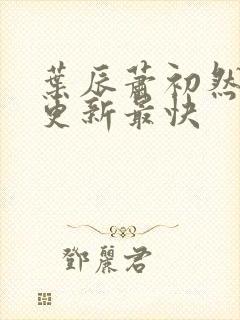 葉辰蕭初然
更新最快
鄧麗君